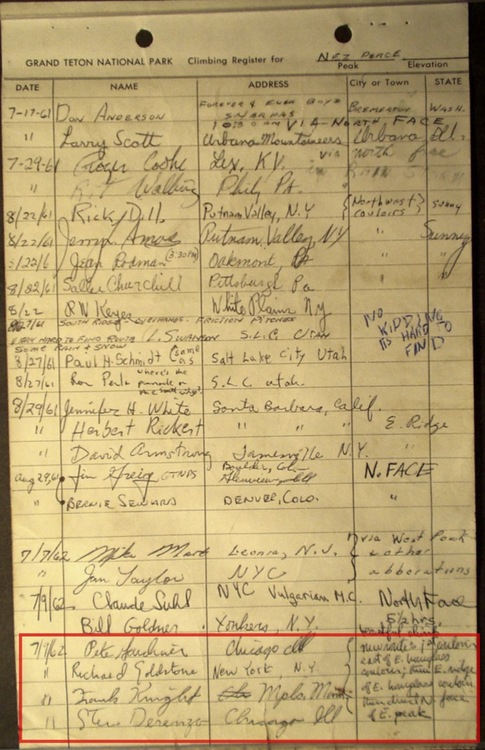 GRAND TETON NATIONAL PARK Climbing Register for NEZ PERCE
Peak Elevation
DATE NAME ADDRESS City or Town STATE
FOREVER & EVER BOYS
7-17-61 DON ANDERSON BREMERTON WASH.
VIA NORTH FACE
" Larry Scott Urbana Mountaineers Urbana Ill.
7-29-61 Roger Cooke Lex, KY. via north face
" Phil, Pa.
8/22/61 Ricky Putnam Valley, N.Y (Northwest couloirs) sunny
8/22/61 Jerry Amos Putnam Valley, NY " Sunny
8/22/61 Jean Rodman (3:30PM) Oakmont, Pa " "
8/22/61 Sally Churchill Pittsburgh Pa
8/22 RW Keyes White Plains NY
8/27/61 SOUTH RIDGE FRICTION PITCHES
VERY HARD TO FIND ROUTE L. SWANSON S.L.C. UTAH
SOME RAIN & SNOW
NO KIDDING
ITS HARD TO
FIND
8/27/61 PAUL H. Schmidt (same as) Salt Lake City Utah
8/27/61 Ron Perla where's the S.L.C. Utah.
8/29/61 Jennifer H. White Santa Barbara, Calif.
" Herbert Rickert " " " E. Ridge
" David Armstrong Jamesville N.Y. "
Aug 29, 61 Jim Greig GTNPS Boulder, Colo N. FACE
Glenview Ill
" BERNIE SEWARD DENVER, COLO. "
7/7/62 Mike Leonia, N.J. via West Peak
" Jan Taylor NYC & other
abberations
7/9/62 Claude Suhl NYC Vulgarian M.C. North Face
" Bill Goldner Yonkers, N.Y. 5½ hrs.
7/9/62 Pete Gardiner Chicago Ill new route: 1st couloir
" Richard Goldstone New York N.Y. east of E. hourglass
couloir; then E. ridge
" Frank Knight Mpls. Minn of E. hourglass couloir
" Steve Derenzo Chicago Ill then direct N. face
of E. peak